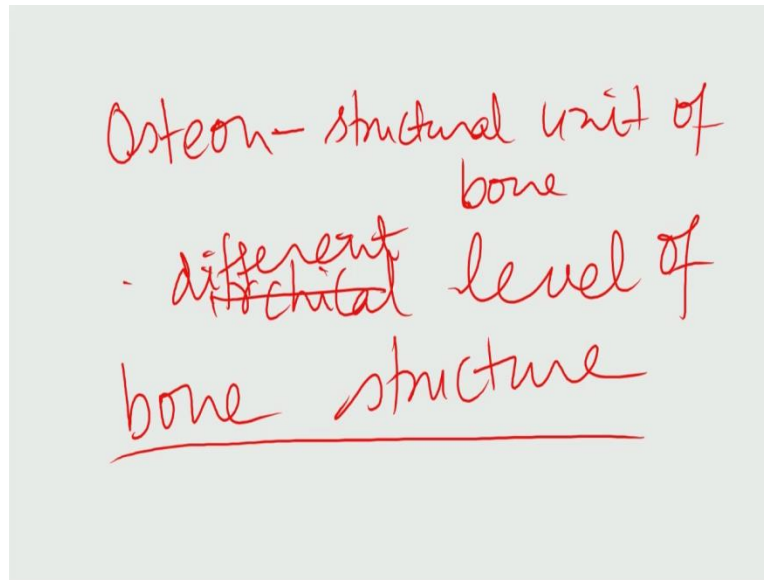 Osteon - structural unit of
bone
. different level of
bone structure